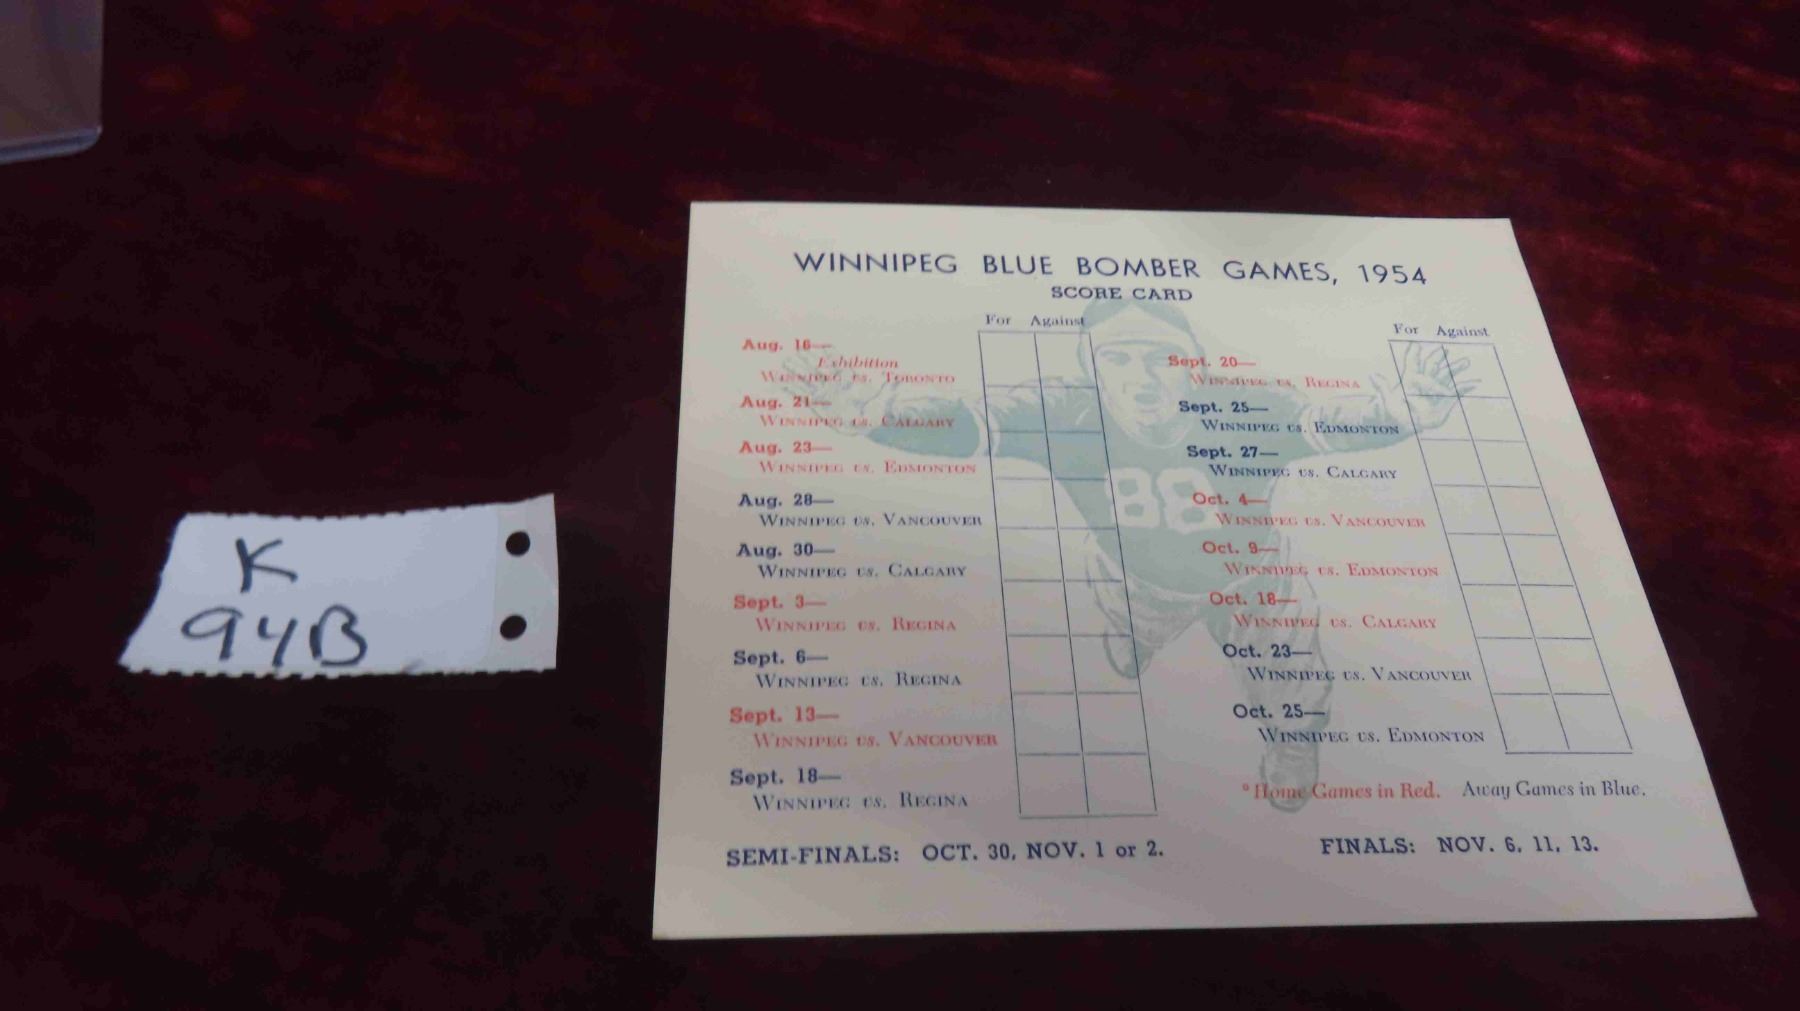 K
94B
WINNIPEG BLUE BOMBER GAMES, 1954
SCORE CARD
For Against
Aug. 16—
Exhibition
WINNIPEG vs. TORONTO
Aug. 21—
WINNIPEG vs. CALGARY
Aug. 23—
WINNIPEG vs. EDMONTON
Aug. 28—
WINNIPEG vs. VANCOUVER
Aug. 30—
WINNIPEG vs. CALGARY
Sept. 3—
WINNIPEG vs. REGINA
Sept. 6—
WINNIPEG vs. REGINA
Sept. 13—
WINNIPEG vs. VANCOUVER
Sept. 18—
WINNIPEG vs. REGINA
For Against
Sept. 20—
WINNIPEG vs. REGINA
Sept. 25—
WINNIPEG vs. EDMONTON
Sept. 27—
WINNIPEG vs. CALGARY
Oct. 4—
WINNIPEG vs. VANCOUVER
Oct. 9—
WINNIPEG vs. EDMONTON
Oct. 18—
WINNIPEG vs. CALGARY
Oct. 23—
WINNIPEG vs. VANCOUVER
Oct. 25—
WINNIPEG vs. EDMONTON
88
°Home Games in Red. Away Games in Blue.
SEMI-FINALS: OCT. 30, NOV. 1 or 2. FINALS: NOV. 6, 11, 13.